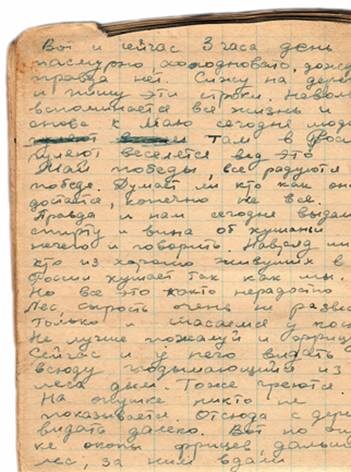 Вот и сейчас 3 часа день
пасмурно холодновато, дожд
правда нет. Сижу на дере
и пишу эти строки. Невол
вспоминается вся жизнь и
снова к Маю сегодня люди
там в Росс
гуляют веселятся ведь это
Май победы, все радуются
победе. Думает ли кто как она
достается, конечно не все.
Правда и нам сегодня выдал
спирту и вина от кушаньй
нечего и говорить. Навряд ли
кто из хорошо живущих в
России кушает так как мы.
Но все это както нерадостно
Лес, сырость очень не разве
только и спасаемся у кост
Не лучше пожалуй и фриц
Сейчас и у него видать
всюду подымающийся из
леса дым. Тоже греются.
На опушке никто не
показывается. Отсюда с дер
видать далеко. Вот по оп
ке окопы фрицев дальше
лес, за ним вдали